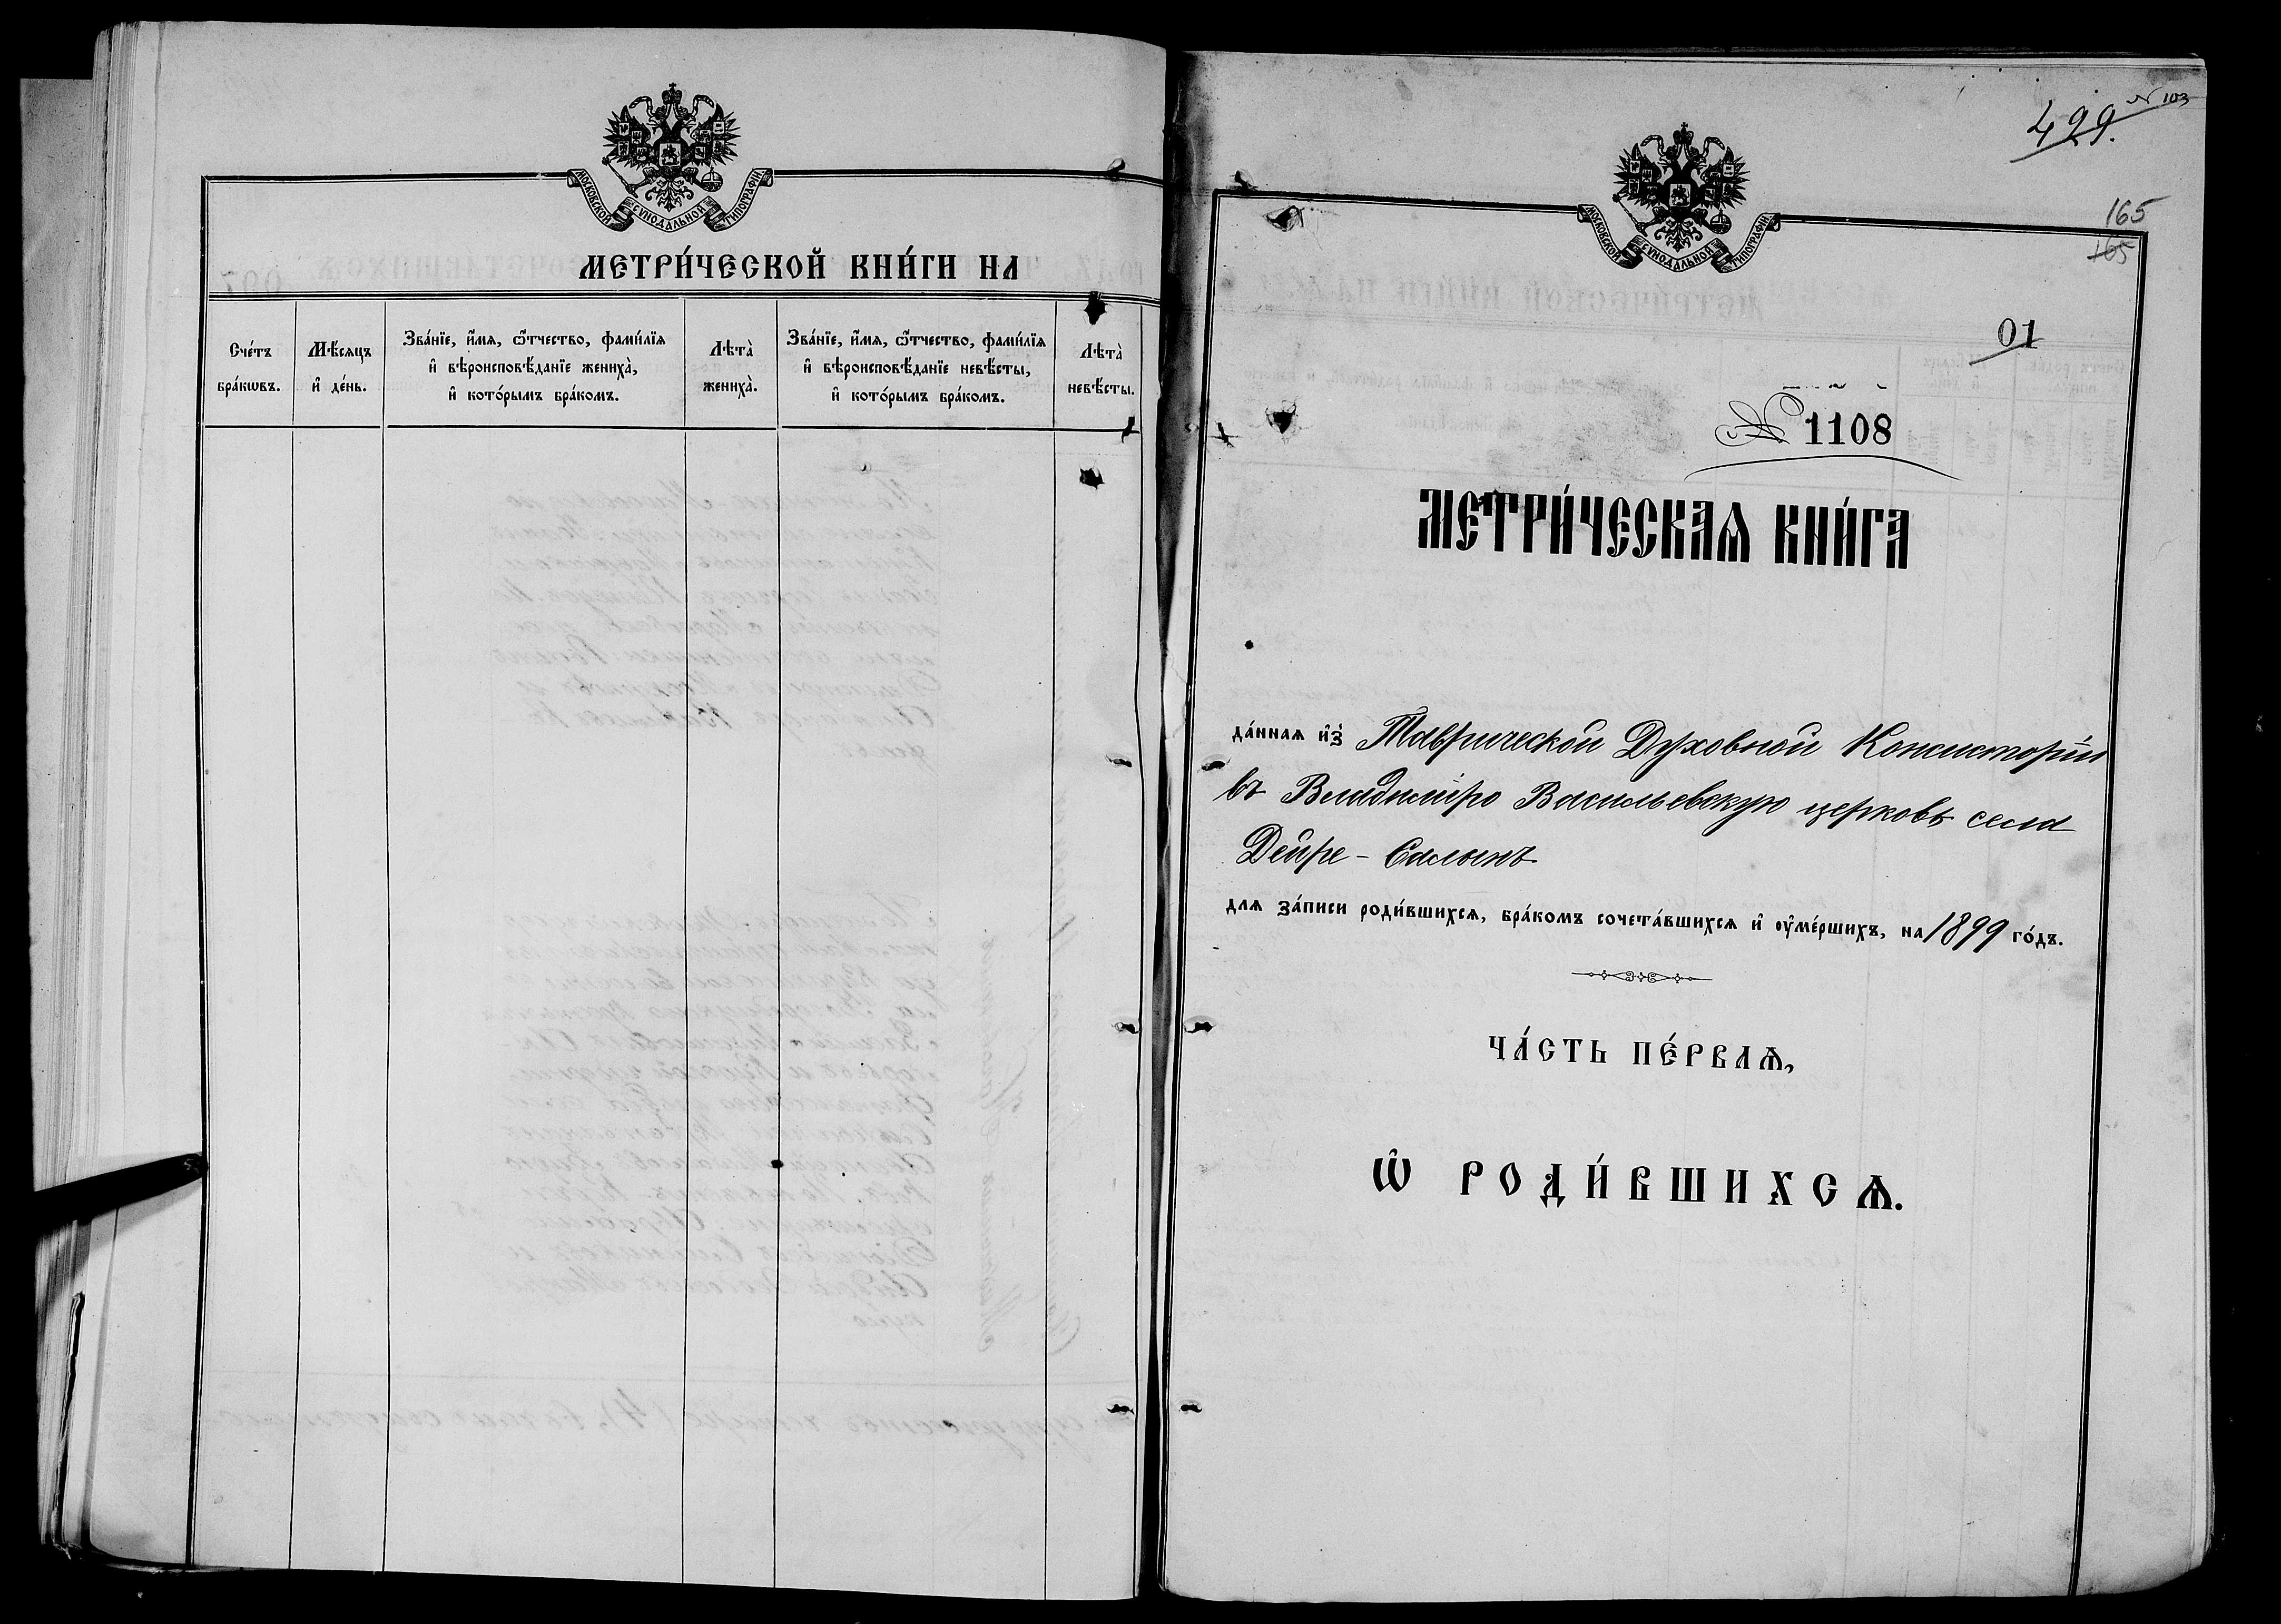 МОСКОВСКОЙ СѴНОДАЛЬНОЙ ТИПОГРАФІИ
МЕТРИ́ЧЕСКОЙ КНИ́ГИ НА
Сче́тъ бра́кωвъ.
Мѣ́сяцъ и҆ де́нь.
Зва́нїе, и҆́мѧ, ѻ҆́тчество, фами́лїѧ
и҆ вѣроисповѣ́данїе жениха̀,
и҆ кото́рымъ бра́комъ.
Лѣта̀ жениха̀.
Зва́нїе, и҆́мѧ, ѻ҆́тчество, фами́лїѧ
и҆ вѣроисповѣ́данїе невѣ́сты,
и҆ кото́рымъ бра́комъ.
Лѣта̀ невѣ́сты.
№ 103
499.
МОСКОВСКОЙ СѴНОДАЛЬНОЙ ТИПОГРАФІИ
165
165
01
№ 1108
МЕТРИ́ЧЕСКАѦ КНИ́ГА
да́ннаѧ и҆з̾ Таврической Духовной Консисторіи
въ Владиміро Васильевскую церковь села
Дейре - Салынъ
длѧ за́писи роди́вшихсѧ, бра́комъ сочета́вшихсѧ и҆ ᲂу҆ме́ршихъ, на 1899 го́дъ.
ЧА́СТЬ ПЕ́РВАѦ,
Ѽ РОДИ́ВШИХСѦ.